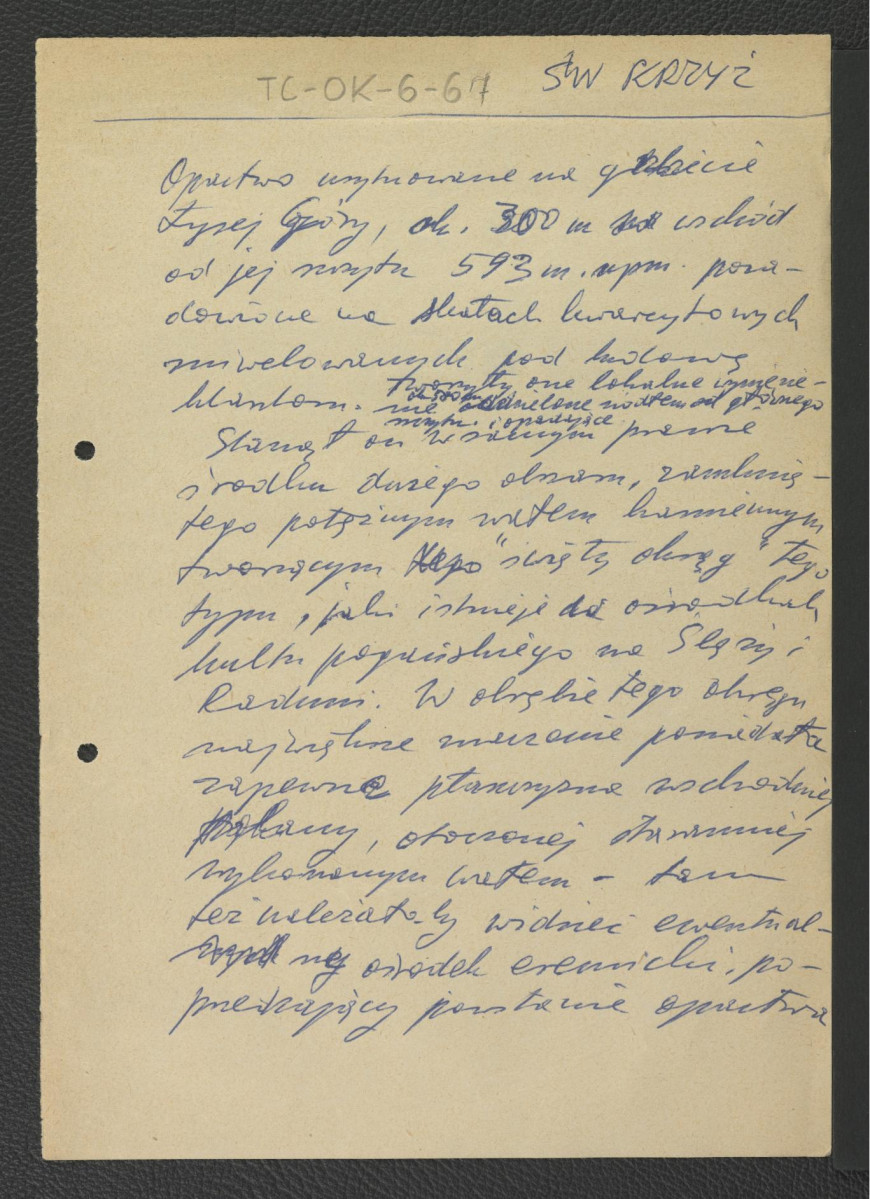 TC-OK-6-67 ŚW KRZYŻ
Opactwo usytuowane na grzbiecie
Łysej Góry, ok. 300 m na wschód
od jej szczytu 593 m. npm. posa-
dowione na skałach kwarcytowych
niwelowanych pod budowę
klasztoru. tworzyły one lokalne wyniesie-
nie oddzielone siodłem od głównego
szczytu i opadające
Stanął on w samym prawie
środku dużego obszaru, zamknię-
tego potężnym wałem kamiennym
tworzącym "święty okrąg" tego
typu, jaki istnieje w ośrodkach
kultu pogańskiego na Ślęży i
Raduni. W obrębie tego okręgu
największe znaczenie posiadała
zapewne płaszczyzna wschodniej
polany, otoczonej staranniej
wykonanym wałem - tam
też należałoby widzieć ewentual-
ny ośrodek eremicki, po-
przedzający powstanie opactwa